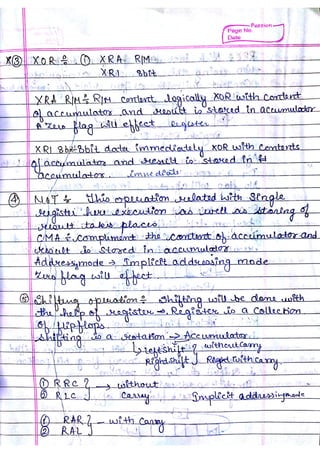 Page No.
Date
*③ XOR ÷ ① XRA R/M
XRI 8bit
XRA R/M ÷ R/M content logically XOR with content
of accumulator and result is stored in accumulator
A Zero flag will effect Register
XRI 8bit 8bit data immediately XOR with contents
of accumulator and result is stored in
accumulator. Immediate
④ NOT ÷ This operation related with single
register here execution as well as storing of
result takes places
CMA ÷ compliment the content of accumulator and
result is stored in accumulator
Address mode → Implicit addressing mode
Zero flag will effect
⑤ Shifting operation ÷ Shifting will be done with
the help of register →. Register is a Collection
of flipflops
Shifting is a rotation → Accumulator
→ left shift } without carry
Right shift } Right with carry
① RRC } → without
② RLC } Carry Implicit addressing mode
① RAR } → with Carry
② RAL }